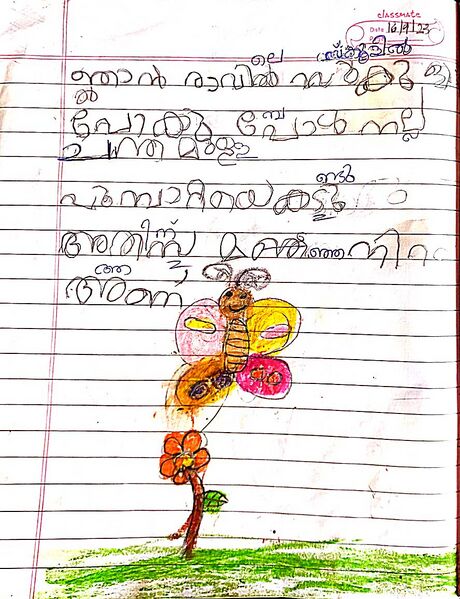 classmate
Date 16/9/23
ലെ സ്കൂളിൽ
ഞാൻ രാവിൽ
പോകു മ്പോൾ നല്ല
ചന്തമുള്ള
പൂമ്പാറ്റയെ കണ്ടു
അതിന്ന് മഞ്ഞ നിറ
ത്താ
ആണ്